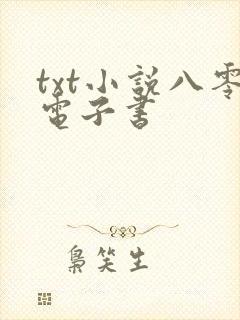 txt小説八零
電子書
梟笑生